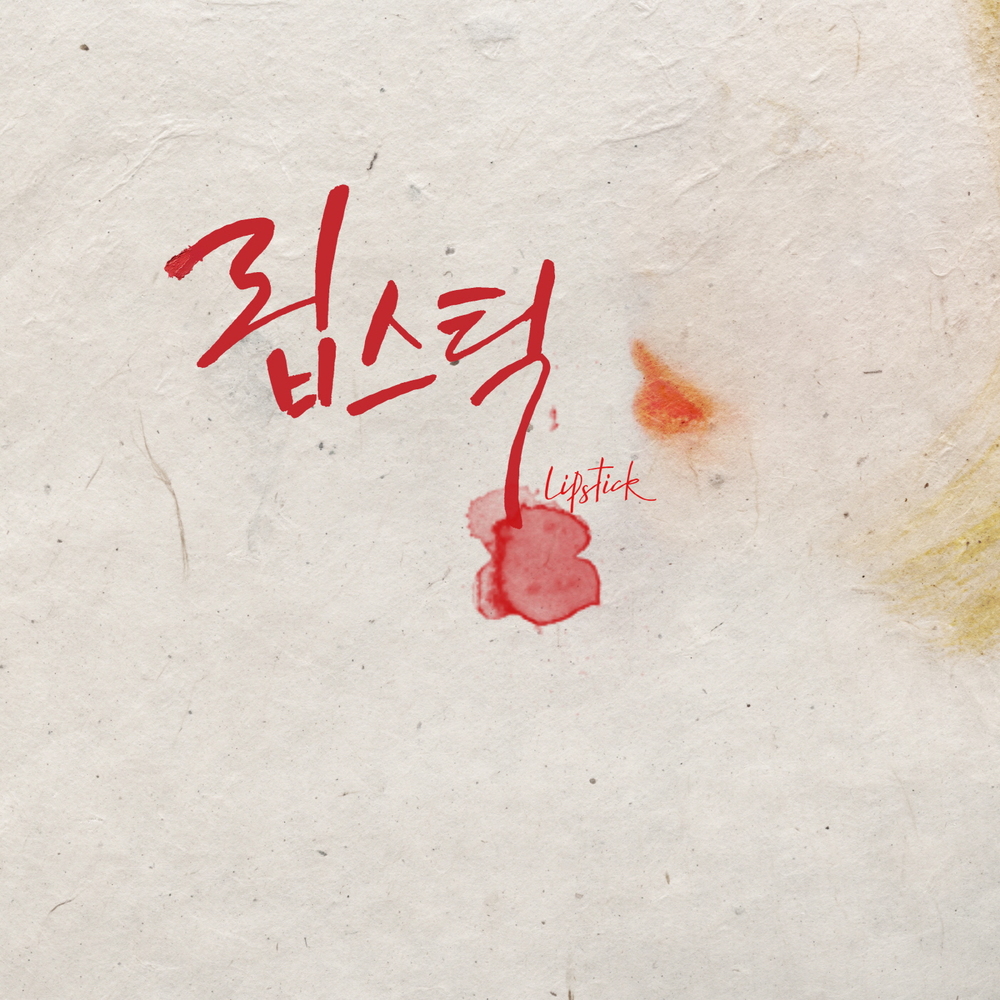 립스틱
Lipstick